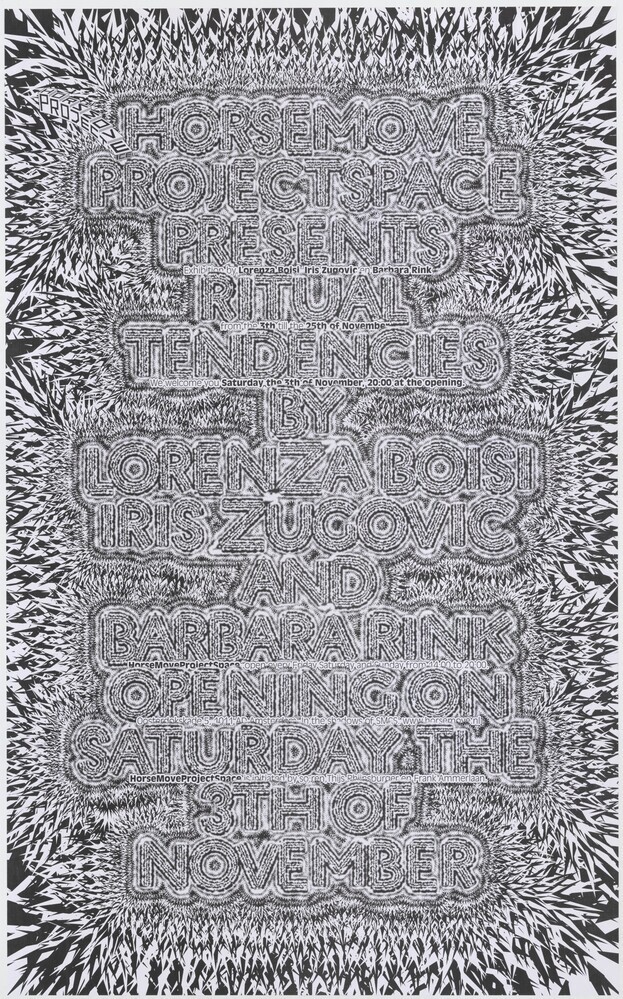 PROJECTS
HORSEMOVE
PROJECTSPACE
PRESENTS
Exhibition by Lorenza Boisi, Iris Zugovic en Barbara Rink
RITUAL
from the 3th till the 25th of November
TENDENCIES
We welcome you Saturday the 3th of November, 20:00 at the opening.
BY
LORENZA BOISI
IRIS ZUGOVIC
AND
BARBARA RINK
HorseMoveProjectSpace open every Friday, Saturday and Sunday from 14:00 to 20:00
OPENING ON
Oosterdokskade 5, 1011 AD in the shadows of SMCS. www.horsemove.nl
SATURDAY THE
HorseMoveProjectSpace is initiart by Thijs en Frank Ammerlaan
3TH OF
NOVEMBER